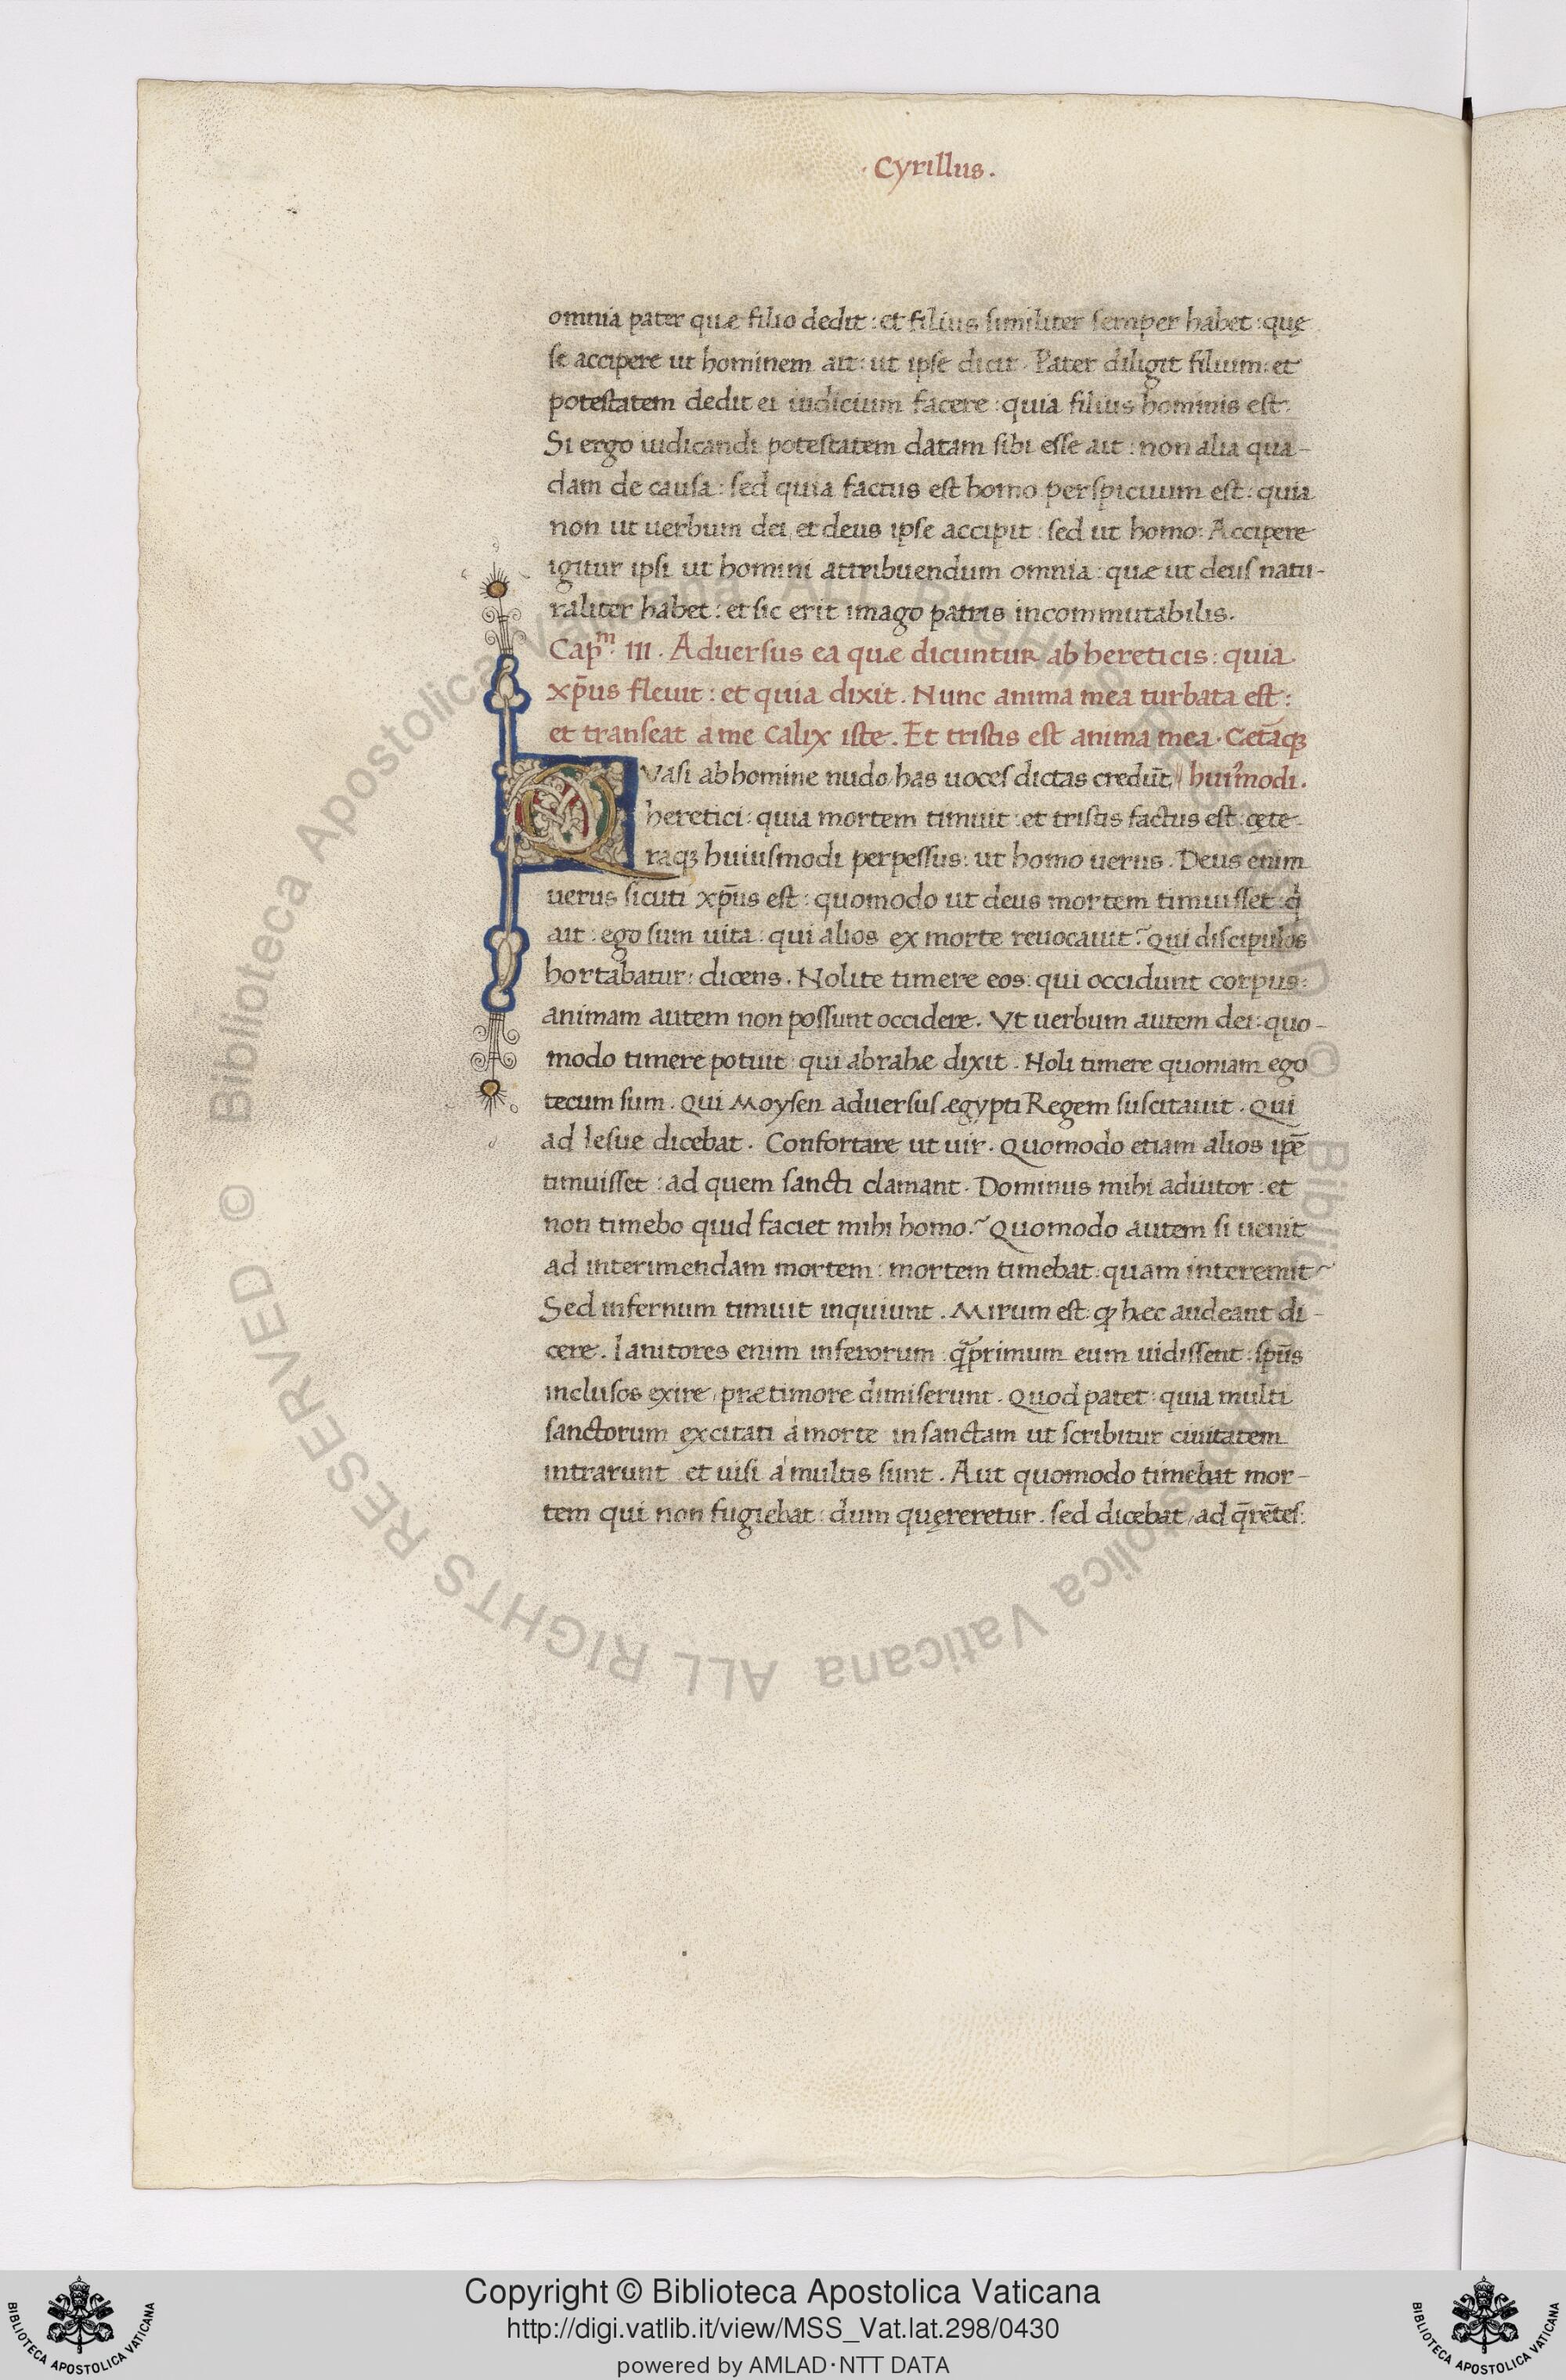 · Cyrillus .
omnia pater quæ filio dedit : et filius similiter semper habet : quę
se accipere ut hominem ait : ut ipse dicit . Pater diligit filium : et
potestatem dedit ei iudicium facere : quia filius hominis est .
Si ergo iudicandi potestatem datam sibi esse ait : non alia qua-
dam de causa : sed quia factus est homo perspicuum est : quia
non ut uerbum dei, et deus ipse accipit : sed ut homo : Accipere
igitur ipsi ut homini attribuendum omnia : quæ ut deus natu-
raliter habet : et sic erit imago patris incommutabilis.
Cap.ᵐ III . Adversus ea quæ dicuntur ab hereticis : quia
xp̄us flevit : et quia dixit . Nunc anima mea turbata est :
et transeat a me calix iste . Et tristis est anima mea . Cetãq;
QVasi ab homine nudo has uoces dictas credūt, huiꝰmodi .
heretici : quia mortem timuit : et tristis factus est : cęte-
raq; huiusmodi perpessus : ut homo uerus . Deus enim
uerus sicuti xp̄us est : quomodo ut deus mortem timuisset : q̄
ait : ego sum uita : qui alios ex morte reuocauit ? Qui discipulos
hortabatur : dicens . Nolite timere eos : qui occidunt corpus :
animam autem non possunt occidere . Vt uerbum autem dei : quo-
modo timere potuit : qui abrahæ dixit . Noli timere quoniam ego
tecum sum . Qui Moysen aduersus ægypti Regem suscitauit . Qui
ad Iesue dicebat . Confortare ut uir . Quomodo etiam alios ip̄e
timuisset : ad quem sancti clamant . Dominus mihi adiutor : et
non timebo quid faciet mihi homo ? Quomodo autem si uenit
ad interimendam mortem : mortem timebat : quam interemit ?
Sed infernum timuit inquiunt . Mirum est : ꝙ hæc audeant di-
cere . Ianitores enim inferorum : q̃primum eum uidissent : sp̄us
inclusos exire, præ timore dimiserunt . Quod patet : quia multi
sanctorum excitati á morte in sanctam ut scribitur ciuitatem
intrarunt et uisi á multis sunt . Aut quomodo timebat mor-
tem qui non fugiebat : dum quęreretur . sed dicebat, ad q̄rētes :
© Biblioteca Apostolica Vaticana ALL RIGHTS RESERVED
© Biblioteca Apostolica Vaticana ALL RIGHTS RESERVED
Copyright © Biblioteca Apostolica Vaticana
http://digi.vatlib.it/view/MSS_Vat.lat.298/0430
powered by AMLAD·NTT DATA
BIBLIOTECA APOSTOLICA VATICANA
BIBLIOTECA APOSTOLICA VATICANA